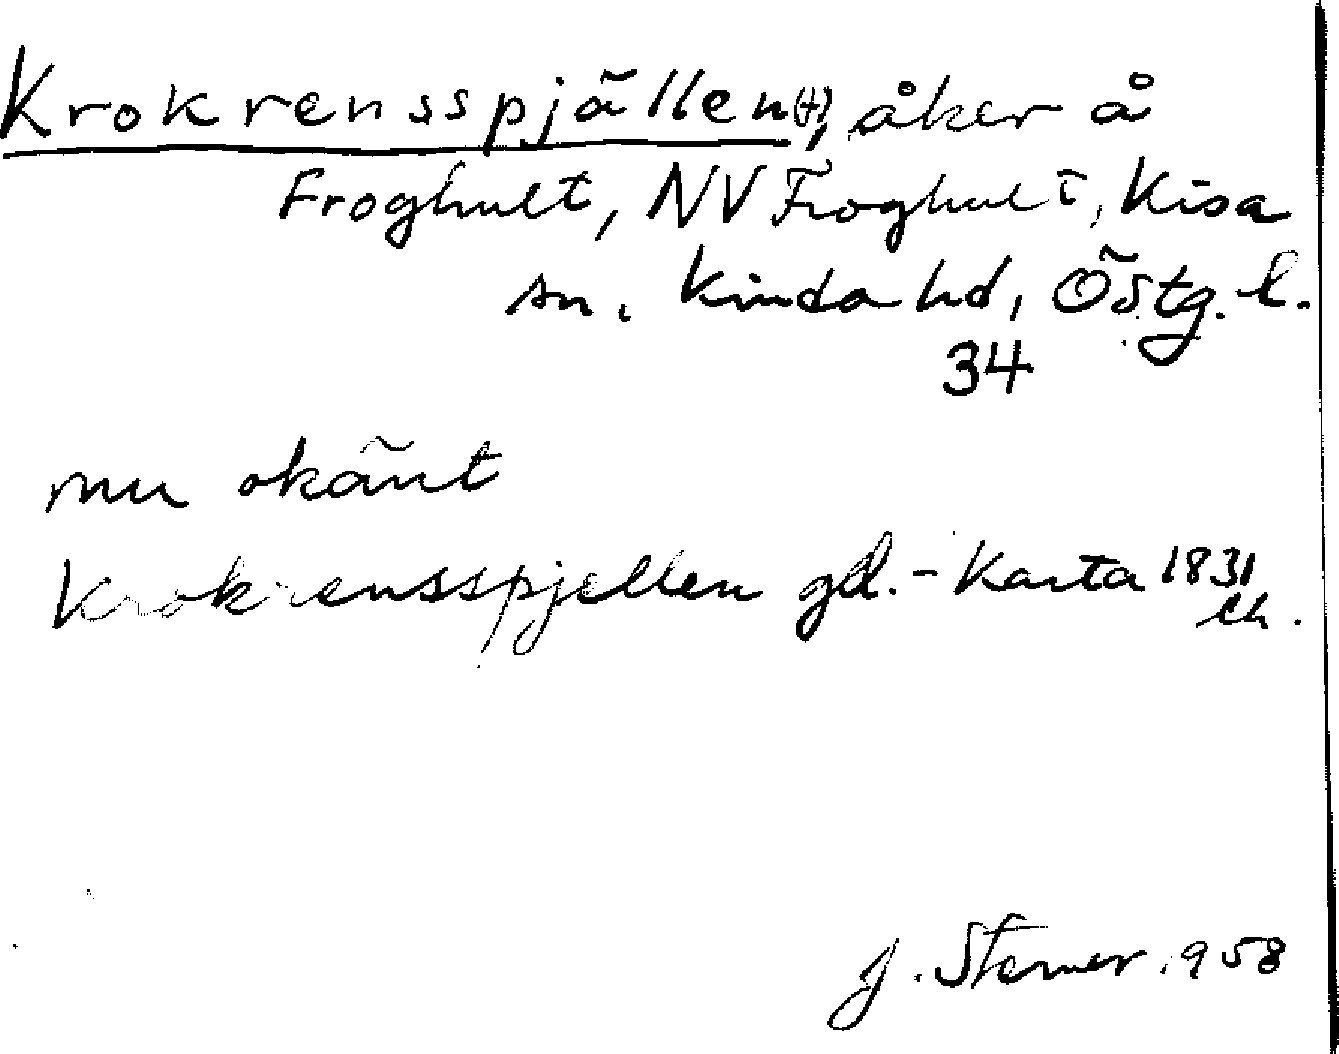 Krokrensspjällen(+), åker å
Froghult, NV Froghult, Kisa
sn. Kinda hd, Östg. l.
34
nu okänt
Krokrensspjellen gd. - Karta 1831
J. Sterner 1958